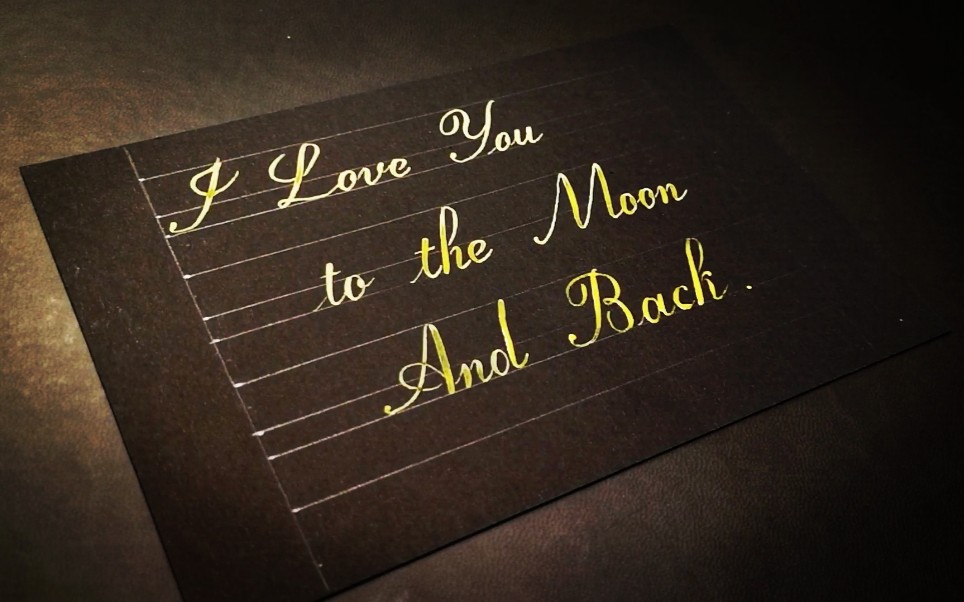 I Love You
to the Moon
And Back.